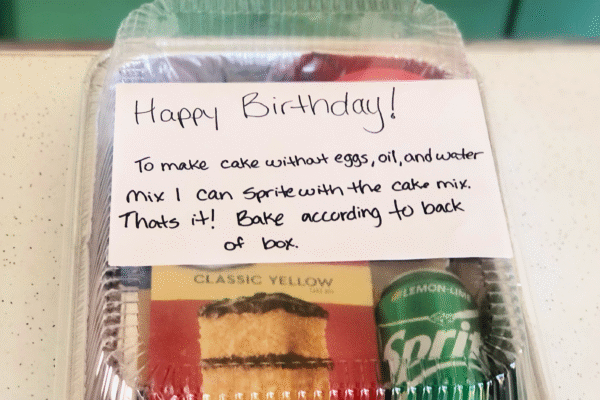 Happy Birthday!
To make cake without eggs, oil, and water
mix 1 can Sprite with the cake mix.
Thats it! Bake according to back
of box.
CLASSIC YELLOW
LEMON-LIM
Sprit